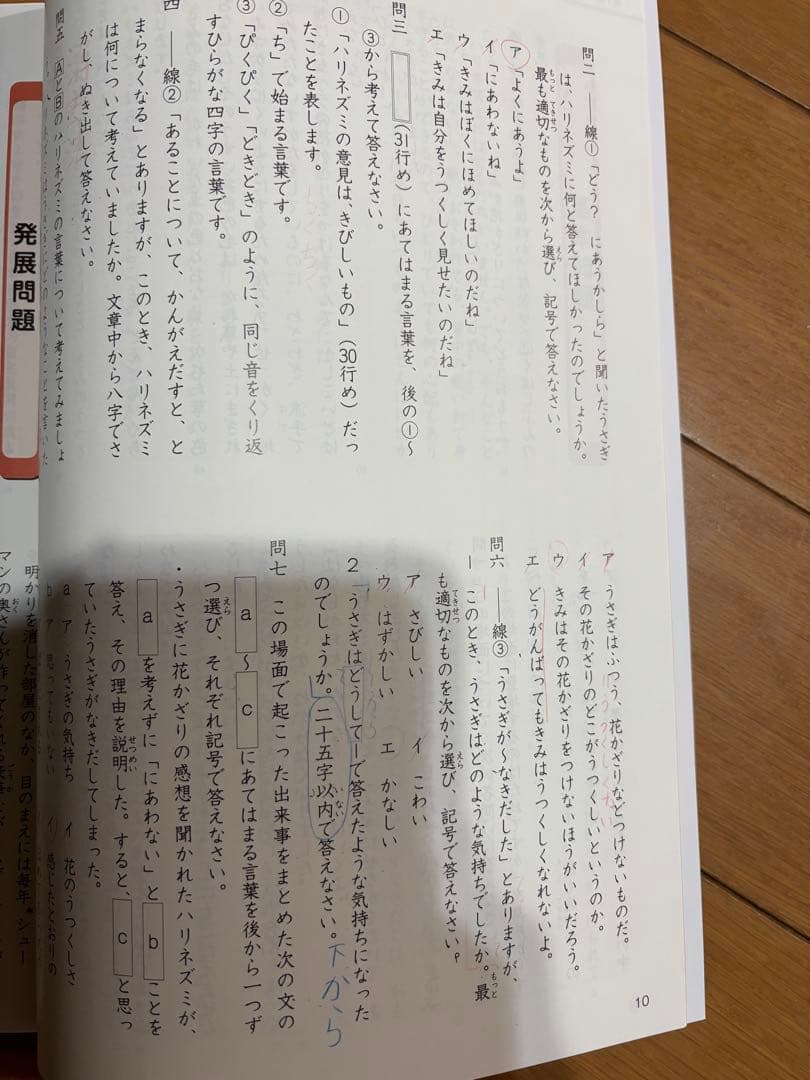 問二 ――線①「どう? にあうかしら」と聞いたうさぎ
は、ハリネズミに何と答えてほしかったのでしょうか。
最も適切なものを次から選び、記号で答えなさい。
ア 「よくにあうよ」
イ 「にあわないね」
ウ 「きみはぼくにほめてほしいのだね」
エ 「きみは自分をうつくしく見せたいのだね」
問三 (31行め)にあてはまる言葉を、後の①〜
③から考えて答えなさい。
① 「ハリネズミの意見は、きびしいもの」(30行め)だっ
たことを表します。
② 「ち」で始まる言葉です。
③ 「ぴくぴく」「どきどき」のように、同じ音をくり返
すひらがな四字の言葉です。
四 ――線②「あることについて、かんがえだすと、と
まらなくなる」とありますが、このとき、ハリネズミ
は何について考えていましたか。文章中から八字でさ
がし、ぬき出して答えなさい。
問五 AとBのハリネズミの言葉について考えてみましょ
ア うさぎはふつう、花かざりなどつけないものだ。
イ その花かざりのどこがうつくしいというのか。
ウ きみはその花かざりをつけないほうがいいだろう。
エ どうがんばってもきみはうつくしくなれないよ。
問六 ――線③「うさぎが〜なきだした」とありますが、
1 このとき、うさぎはどのような気持ちでしたか。最
も適切なものを次から選び、記号で答えなさい。
ア さびしい イ こわい
ウ はずかしい エ かなしい
2 うさぎはどうして1で答えたような気持ちになった
のでしょうか。二十五字以内で答えなさい。下から
問七 この場面で起こった出来事をまとめた次の文の
a〜cにあてはまる言葉を後から一つず
つ選び、それぞれ記号で答えなさい。
・うさぎに花かざりの感想を聞かれたハリネズミが、
aを考えずに「にあわない」とbことを
答え、その理由を説明した。すると、cと思っ
ていたうさぎがなきだしてしまった。
a ア うさぎの気持ち イ 花のうつくしさ
b ア 思ってもいない イ 感じたとおりの
10
発展問題
明かりを消した部屋のなか、目のまえには毎年*シュー